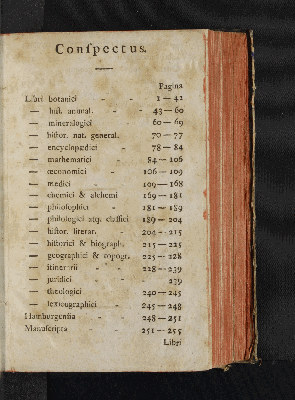 Conſpectus.
Pagina
Libri botanici - - 1 — 42
— hiſt. animal. - - 43 — 60
— mineralogici - 60 — 69
— hiſtor. nat. general. 70 — 77
— encyclopædici - 78 — 84
— mathematici - 84 — 106
— œconomici - 106 — 109
— medici - - 109 — 168
— chemici & alchemi 169 — 181
— philoſophici - 181 — 189
— philologici atq. claſſici 189 — 204
— hiſtor. literar. - 204 - 215
— hiſtorici & biograph. 215 — 225
— geographici & topogr. 225 — 228
— itinerarii - - 228 — 239
— juridici - - 239
— theologici - 240 — 245
— lexicographici - 245 — 248
Hamburgenſia - - 248 — 251
Manuſcripta - - 251 — 255
Libri